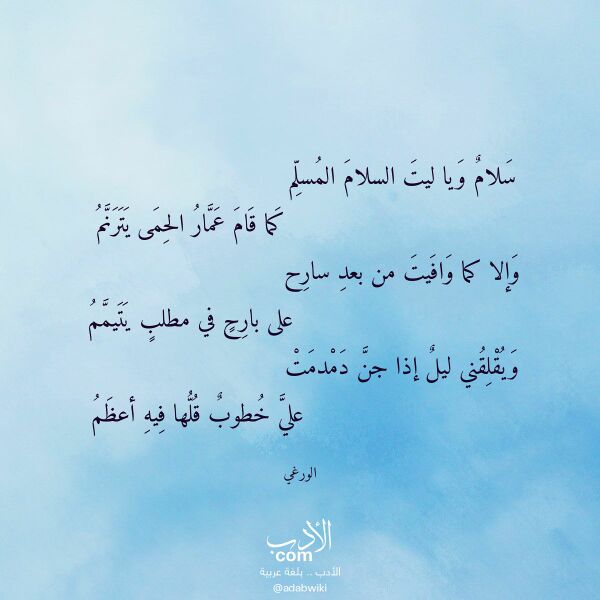 سَلامٌ وَيا ليتَ السلامَ المُسلِّم
كَما قَامَ عَمَّارُ الحِمَى يَتَرَنَّمُ
وَإلا كما وَافَيتَ من بعدِ سارِح
على بارِحٍ في مطلبٍ يَتَيمَّمُ
وَيُقْلِقُني ليلٌ إذا جنَّ دَمْدمَتْ
عليَّ خُطوبٌ قُلُّها فِيهِ أعظَمُ
الورغي
الأدب
com
الأدب .. بلغة عربية
@adabwiki